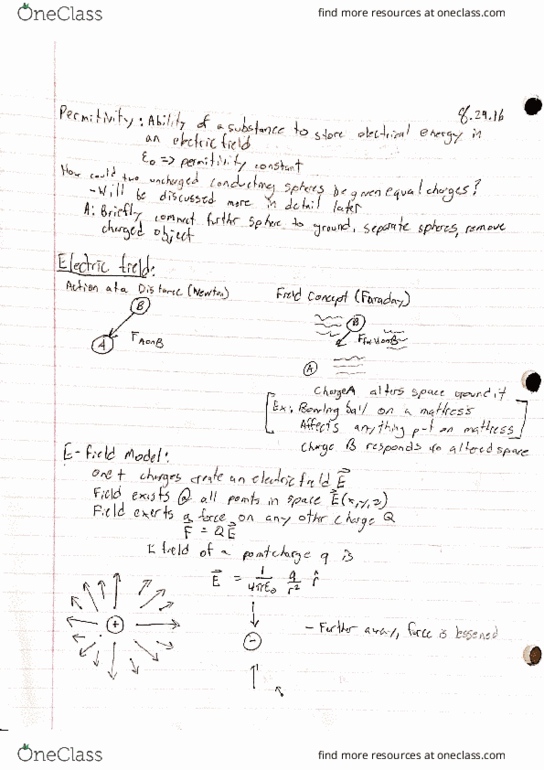 OneClass
find more resources at oneclass.com
8.29.16
Permitivity: Ability of a substance to store electrical energy in
an electric field
ε0 => permitivity constant
How could two uncharged conducting spheres be given equal charges?
- Will be discussed more in detail later
A: Briefly connect further sphere to ground, separate spheres, remove
charged object
Electric field:
Action at a Distance (Newton)
Field Concept (Faraday)
B
B
A
F AonB
F
A
Charge A alters space around it
Ex: Bowling ball on a mattress
Affects anything put on mattress
Charge B responds to altered space
E-Field Model:
one + charges create an electric field E⃗
Field exists @ all points in space E⃗(x,y,z)
Field exerts a force on any other charge Q
F⃗ = QE⃗
E field of a point charge q is
E⃗ = 1/4πε0 q/r² r̂
+
-
- Further away, force is lessened
OneClass
find more resources at oneclass.com